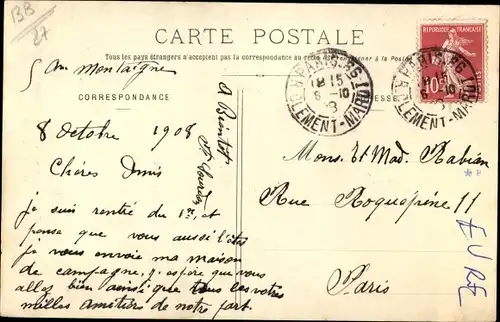 13B
27
CARTE POSTALE
Tous les pays étrangers n'acceptent pas la correspondance au
PARIS 89
15
8 -10
8
CLEMENT-MAROT
RÉPUBLIQUE FRANÇAISE
10
PARIS 89
15
10
8
CLEMENT-MAROT
CORRESPONDANCE
8 Octobre 1908
Chères Amis
je suis rentré du 1er, et
pense que vous aussi l'êtes
je vous envoie ma maison
de campagne, j'espère que vous
allez bien ainsi que tous les votres
milles amitiers de notre part.
A Bientot
Mons. Et Mad. Rabian
Rue Roquépine 11
Paris
EURE